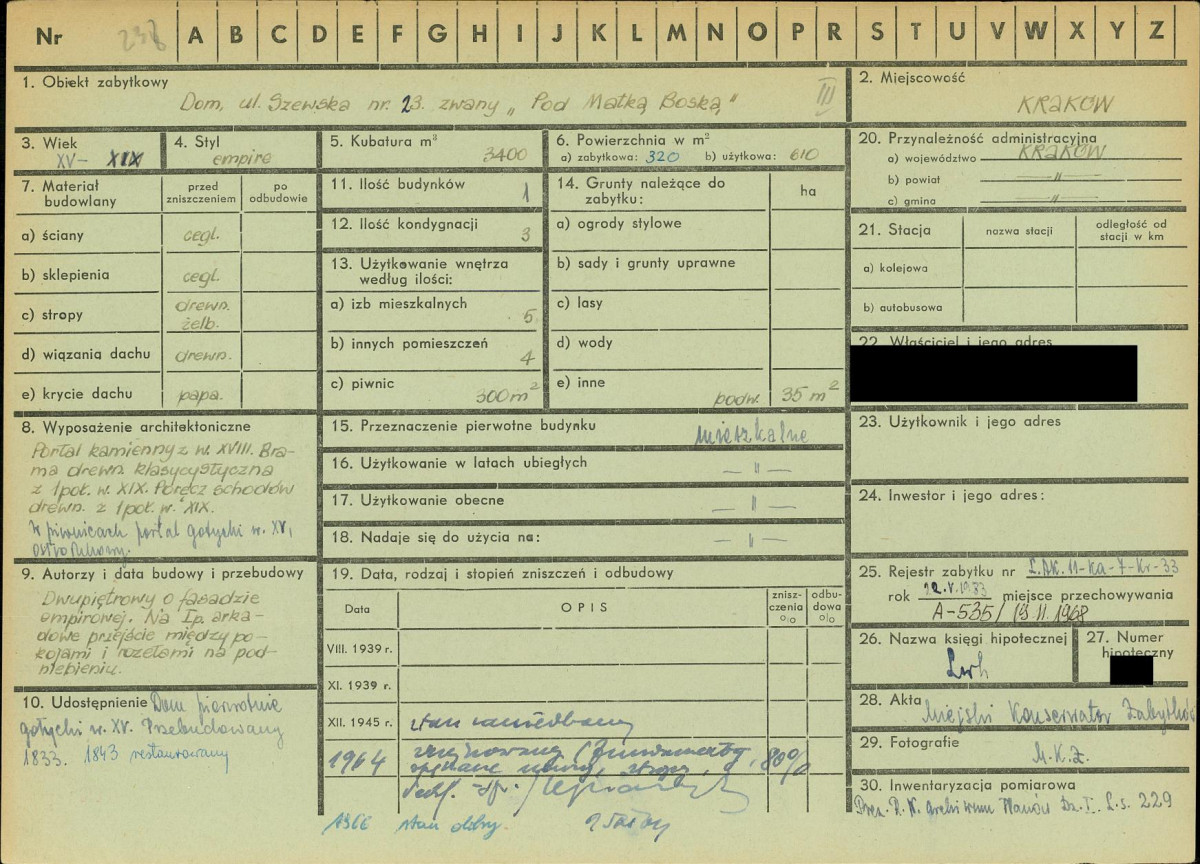 Nr 238 A B C D E F G H I J K L M N O P R S T U V W X Y Z
1. Obiekt zabytkowy
Dom, ul. Szewska nr. 23. zwany „Pod Matką Boską" III
2. Miejscowość
KRAKÓW
3. Wiek
XV– XIX
4. Styl
empire
5. Kubatura m³
3400
6. Powierzchnia w m²
a) zabytkowa: 320 b) użytkowa: 610
20. Przynależność administracyjna
a) województwo KRAKÓW
b) powiat —"—
c) gmina —"—
7. Materiał budowlany
przed zniszczeniem
po odbudowie
a) ściany cegl.
b) sklepienia cegl.
c) stropy drewn.
żelb.
d) wiązania dachu drewn.
e) krycie dachu papa.
11. Ilość budynków 1
12. Ilość kondygnacji 3
13. Użytkowanie wnętrza
według ilości:
a) izb mieszkalnych 5
b) innych pomieszczeń 4
c) piwnic 300 m²
14. Grunty należące do
zabytku:
ha
a) ogrody stylowe
b) sady i grunty uprawne
c) lasy
d) wody
e) inne podw. 35 m²
21. Stacja
nazwa stacji
odległość od
stacji w km
a) kolejowa
b) autobusowa
22. Właściciel i jego adres
8. Wyposażenie architektoniczne
Portal kamienny z w. XVIII. Bra-
ma drewn. klasycystyczna
z 1 poł. w. XIX. Poręcz schodów
drewn. z 1 poł. w. XIX.
W piwnicach portal gotycki w. XV,
ostrołukowy.
15. Przeznaczenie pierwotne budynku mieszkalne
16. Użytkowanie w latach ubiegłych —"—
17. Użytkowanie obecne —"—
18. Nadaje się do użycia na: —"—
23. Użytkownik i jego adres
24. Inwestor i jego adres:
9. Autorzy i data budowy i przebudowy
Dwupiętrowy o fasadzie
empirowej. Na I p. arka-
dowe przejście między po-
kojami i rozetami na pod-
niebieniu.
10. Udostępnienie Dom pierwotnie
gotycki w. XV. Przebudowany
1833. 1843 restaurowany
19. Data, rodzaj i stopień zniszczeń i odbudowy
Data
OPIS
znisz-
czenia
%
odbu-
dowa
%
VIII. 1939 r.
XI. 1939 r.
XII. 1945 r. stan zaniedbany
1964 fundamenty, 80%
1966 stan dobry.
25. Rejestr zabytku nr L.AK.11-Ka-7-Kr-33
rok 22.V.1933 miejsce przechowywania
A-535/ 19.II.1968
26. Nazwa księgi hipotecznej
Lwh
27. Numer
hipoteczny
28. Akta
Miejski Konserwator Zabytków
29. Fotografie
M.K.Z.
30. Inwentaryzacja pomiarowa
Prez. R.N. Archiwum Planów Dz. I. L.s. 229